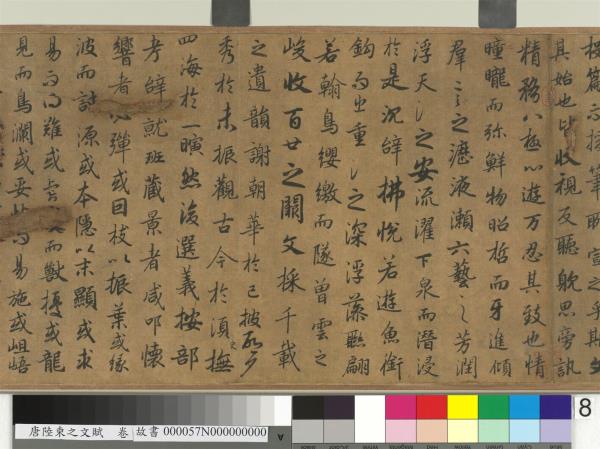 投篇而援筆聊宣之乎斯文
其始也皆收視反聽耽思旁訊
精務八極心遊万忍其致也情
曈曨而弥鮮物昭晢而牙進傾
羣言之瀝液漱六藝之芳潤
浮天淵之安流濯下泉而潛浸
於是沉辭拂悅若遊魚銜
鉤而出重淵之深浮藻聯翩
若翰鳥纓繳而墜曾雲之
峻收百世之闕文採千載
之遺韻謝朝華於已披啓夕
秀於未振觀古今於須臾撫
四海於一瞬然後選義按部
考辭就班藏景者咸叩懷
響者必彈或因枝以振葉或緣
波而討源或本隱以末顯或求
易而得難或虎變而獸擾或龍
見而鳥瀾或妥帖而易施或岨峿
唐陸柬之文賦 卷 故書 000057N000000000
A
8